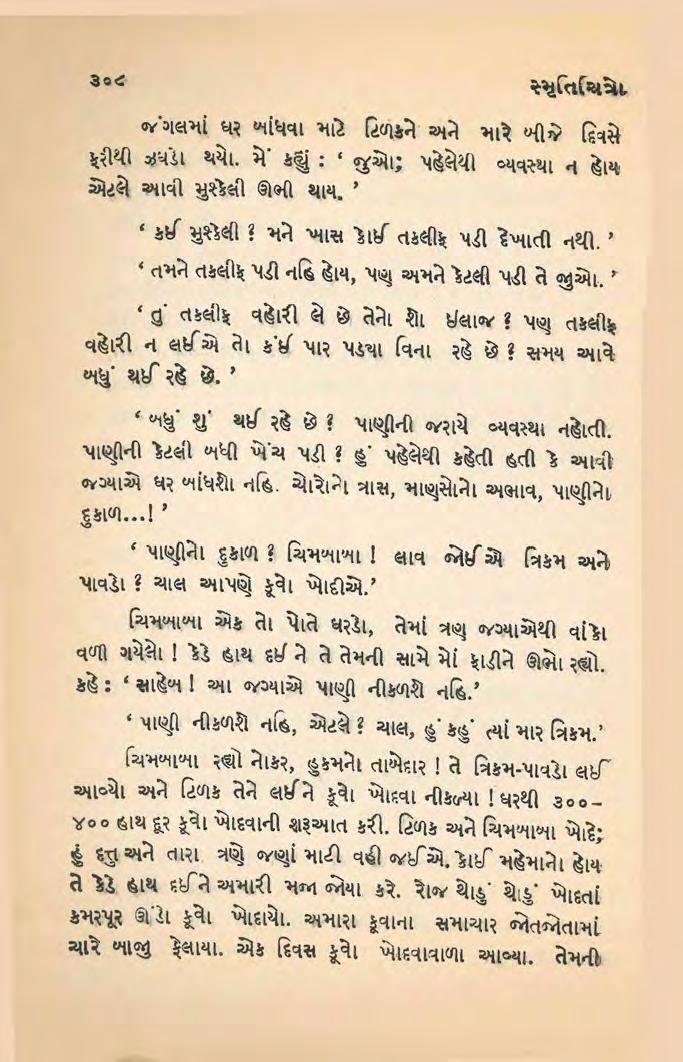 ૩૦૮
સ્મૃતિચિત્રો
જંગલમાં ઘર બાંધવા માટે ટિળકને અને મારે બીજે દિવસે
ફરીથી ઝઘડો થયો. મેં કહ્યું : ‘ જુઓ; પહેલેથી વ્યવસ્થા ન હોય
એટલે આવી મુશ્કેલી ઊભી થાય. ’
‘ કઈ મુશ્કેલી ? મને ખાસ કોઈ તકલીફ પડી દેખાતી નથી. ’
‘ તમને તકલીફ પડી નહિ હોય, પણ અમને કેટલી પડી તે જુઓ. ’
‘ તું તકલીફ વહોરી લે છે તેનો શો ઇલાજ ? પણ તકલીફ
વહોરી ન લઈએ તો કંઈ પાર પડ્યા વિના રહે છે ? સમય આવે
બધું થઈ રહે છે. ’
‘ બધું શું થઈ રહે છે ? પાણીની જરાયે વ્યવસ્થા નહોતી.
પાણીની કેટલી બધી ખેંચ પડી ? હું પહેલેથી કહેતી હતી કે આવી
જગ્યાએ ઘર બાંધશો નહિ. ચોરોનો ત્રાસ, માણસોનો અભાવ, પાણીનો
દુકાળ...! ’
‘ પાણીનો દુકાળ ? ચિમબાબા ! લાવ જોઈએ ત્રિકમ અને
પાવડો ? ચાલ આપણે કૂવો ખોદીએ.’
ચિમબાબા એક તો પોતે ઘરડો, તેમાં ત્રણ જગ્યાએથી વાંકો
વળી ગયેલો ! કેડે હાથ દઈને તે તેમની સામે મોં ફાડીને ઊભો રહ્યો.
કહે : ‘ સાહેબ ! આ જગ્યાએ પાણી નીકળશે નહિ.’
‘ પાણી નીકળશે નહિ, એટલે ? ચાલ, હું કહું ત્યાં માર ત્રિકમ.’
ચિમબાબા રહ્યો નોકર, હુકમનો તાબેદાર ! તે ત્રિકમ-પાવડો લઈ
આવ્યો અને ટિળક તેને લઈને કૂવો ખોદવા નીકળ્યા ! ઘરથી ૩૦૦–
૪૦૦ હાથ દૂર કૂવો ખોદવાની શરૂઆત કરી. ટિળક અને ચિમબાબા ખોદે;
હું દત્તુ અને તારા ત્રણે જણાં માટી વહી જઈએ. કોઈ મહેમાનો હોય
તે કેડે હાથ દઈને અમારી મજા જોયા કરે. રોજ થોડું થોડું ખોદતાં
કમરપૂર ઊંડો કૂવો ખોદાયો. અમારા કૂવાના સમાચાર જોતજોતામાં
ચારે બાજુ ફેલાયા. એક દિવસ કૂવો ખોદવાવાળા આવ્યા. તેમની